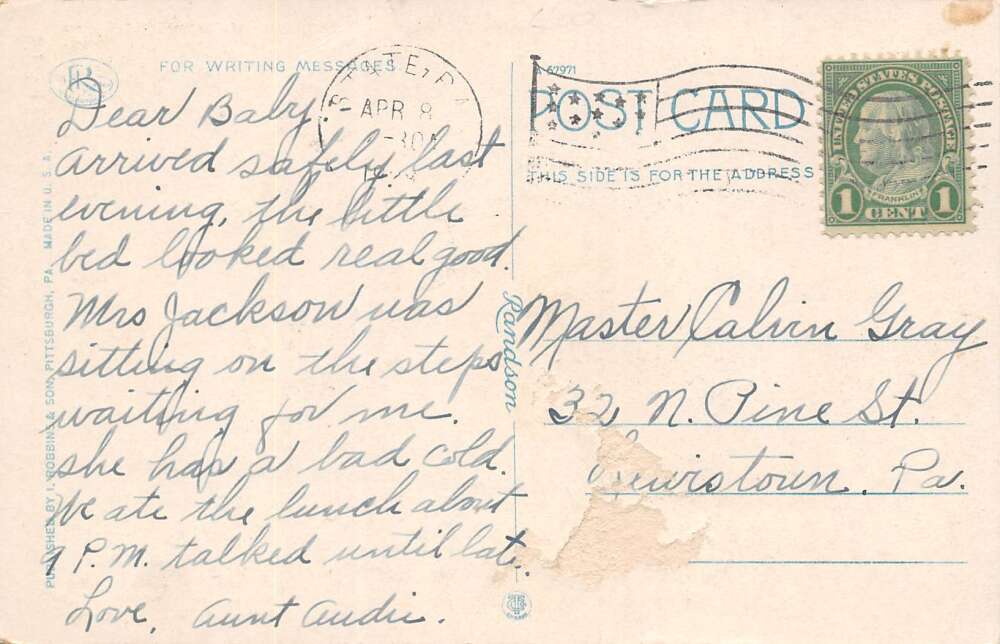 FOR WRITING MESSAGES.
Dear Baby.
arrived safely last
evening, the little
bed looked real good.
Mrs Jackson was
sitting on the steps
waiting for me.
she has a bad cold.
We ate the lunch about
9 P.M. talked until late.
Love, Aunt Audie.
PUBLISHED BY I. ROBBINS & SON, PITTSBURGH, PA. MADE IN U.S.A.
APR 8
Randson
67971
POST CARD
THIS SIDE IS FOR THE ADDRESS
UNITED STATES POSTAGE
FRANKLIN
1 CENT 1
Master Calvin Gray
32 N. Pine St.
Lewistown, Pa.